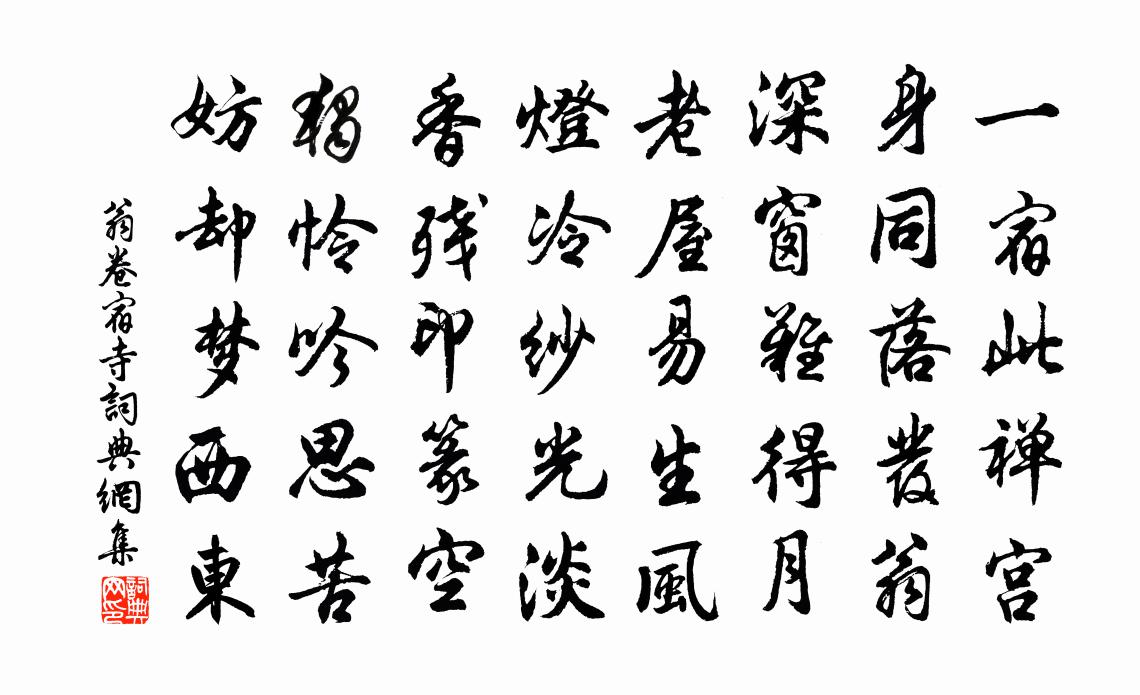 一宿此禅宫
身同落发翁
深窗難得月
老屋易生風
燈冷紗光淡
香残印篆空
獨怜吟思苦
妨却梦西東
翁卷宿寺詞典網集
詞典网印